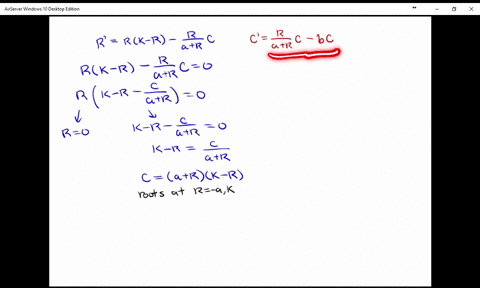 AirServer Windows 10 Desktop Edition
R' = R(K-R) - R/(a+R) C
C' = R/(a+R) C - bC
R(K-R) - R/(a+R) C = 0
R(K-R - C/(a+R)) = 0
R=0
K-R - C/(a+R) = 0
K-R = C/(a+R)
C = (a+R)(K-R)
roots at R=-a, K